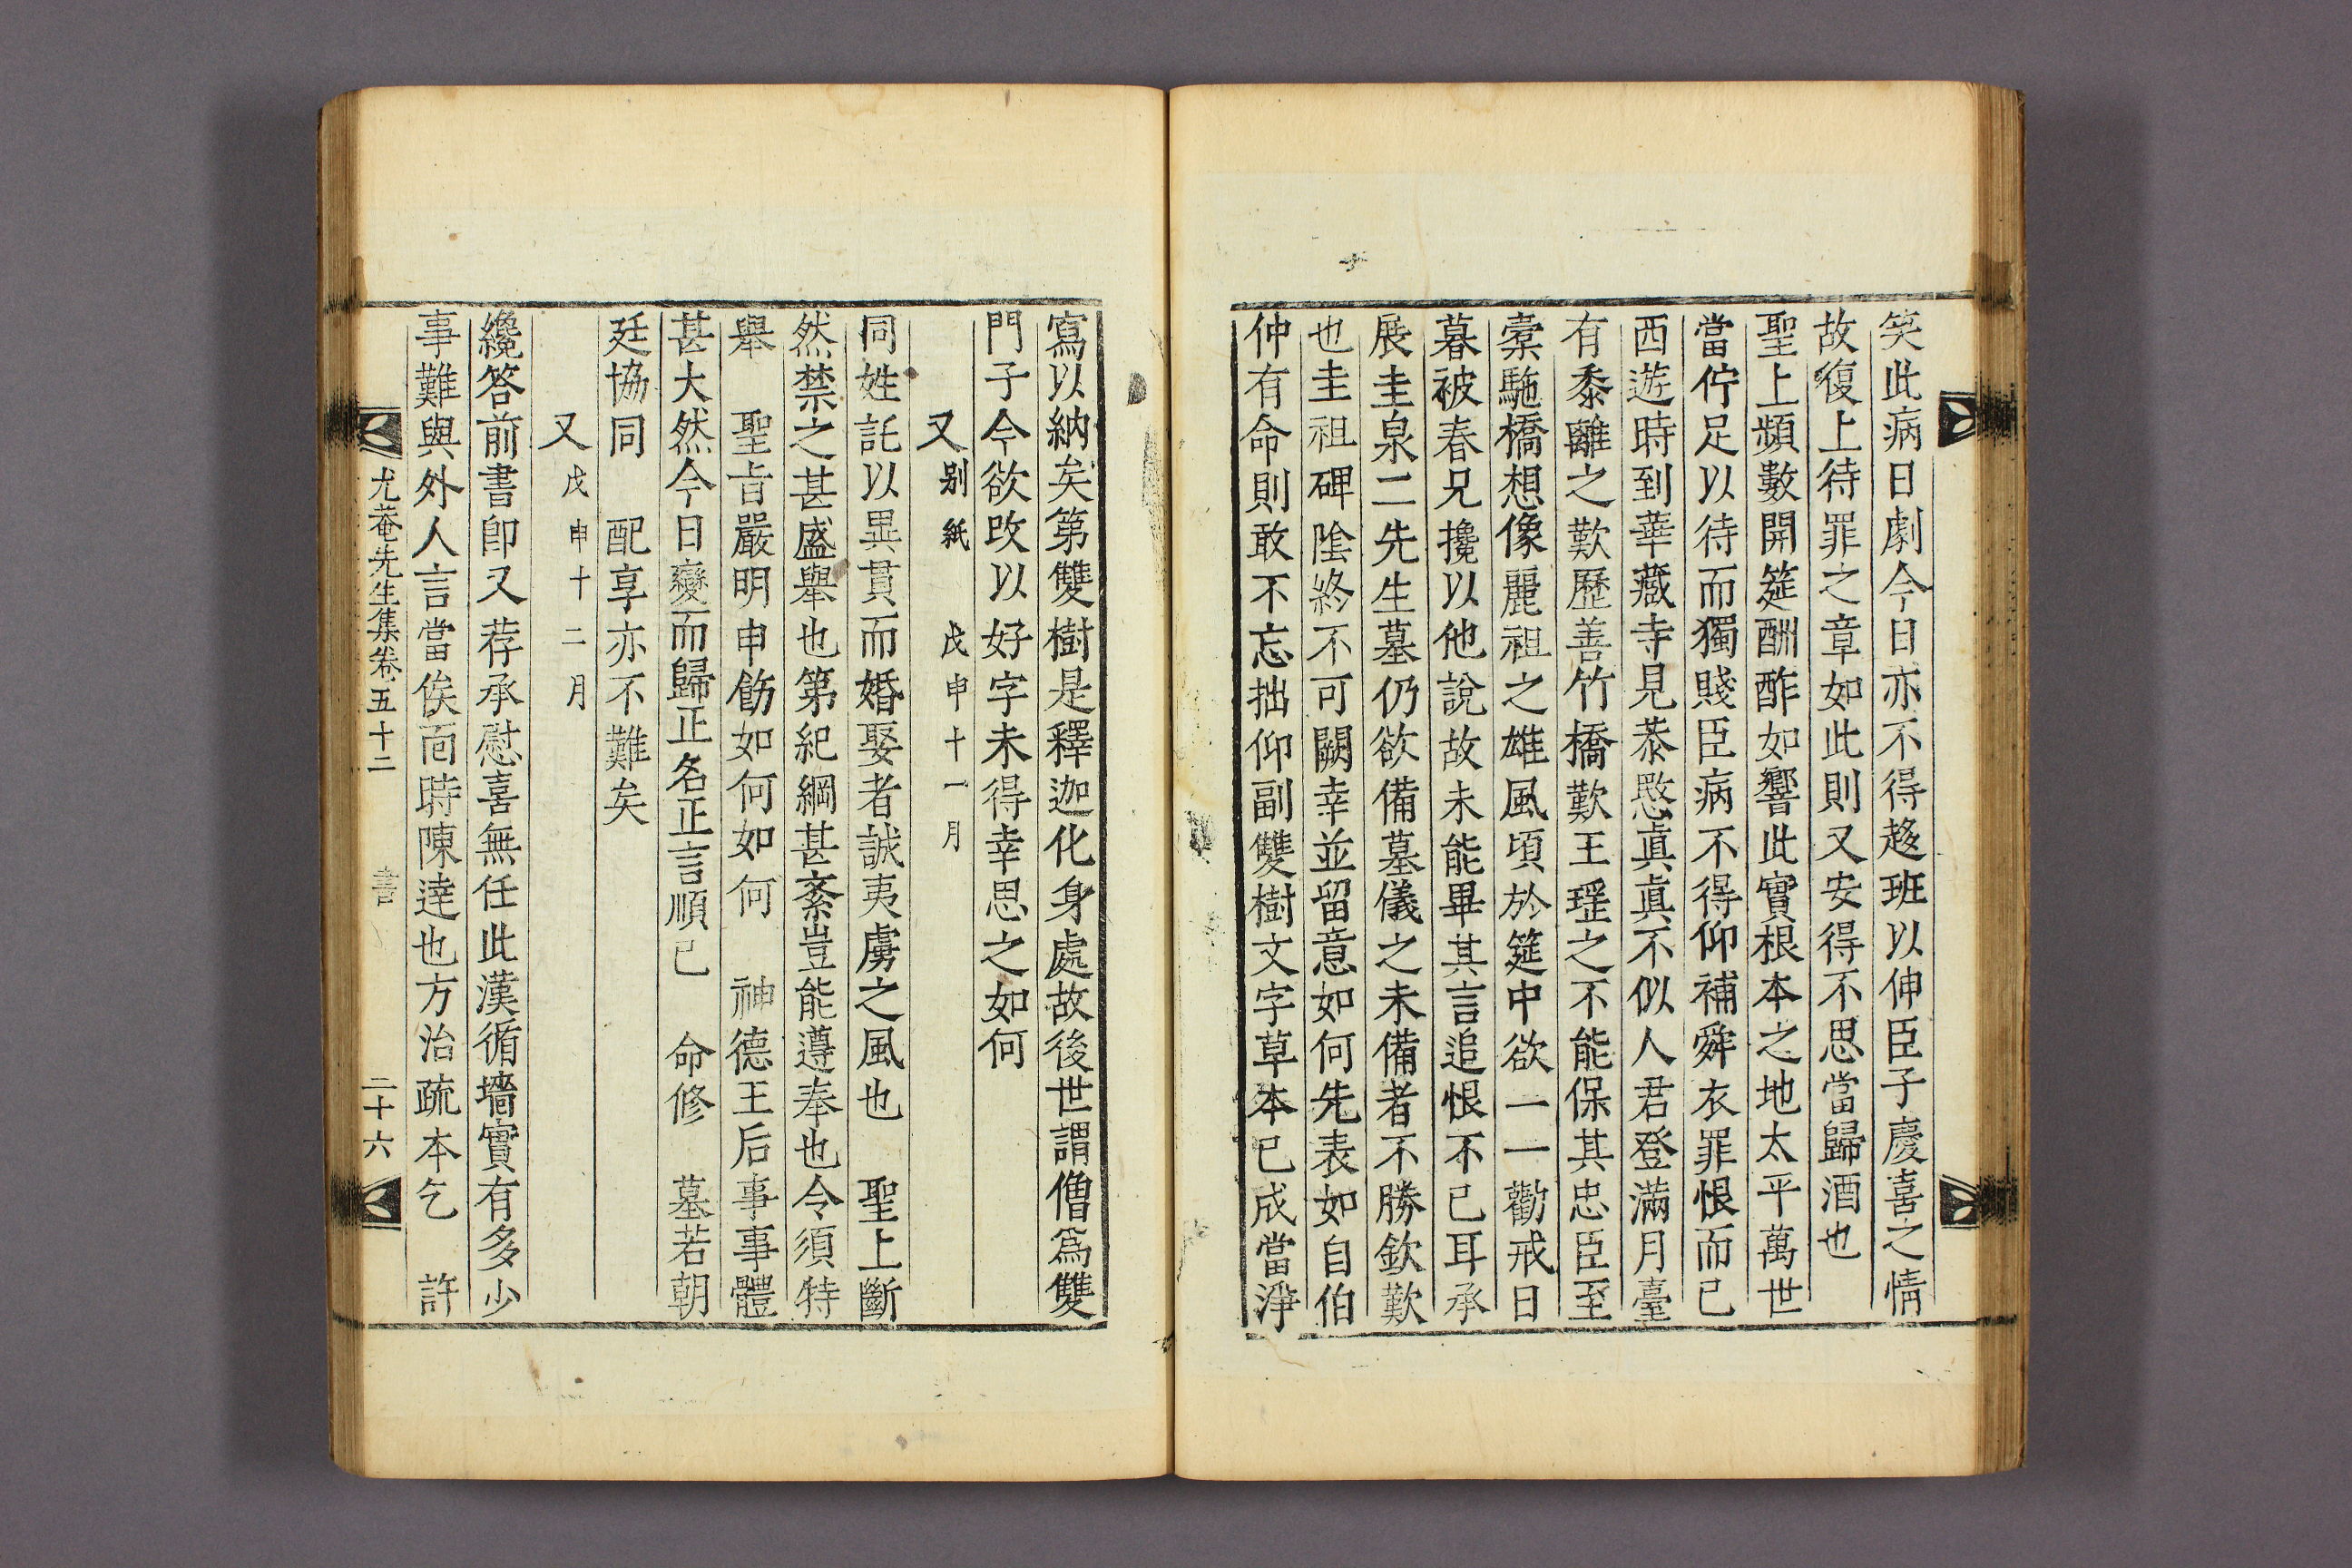 笑此病日劇今日亦不得趍班以伸臣子慶喜之情
故復上待罪之章如此則又安得不思當歸酒也
聖上頻數開筵酬酢如響此實根本之地太平萬世
當佇足以待而獨賤臣病不得仰補舜衣罪恨而已
西遊時到華藏寺見恭愍真真不似人君登滿月臺
有黍離之歎歷善竹橋歎王瑤之不能保其忠臣至
槖駞橋想像麗祖之雄風頃於筵中欲一一勸戒日
暮被春兄攙以他說故未能畢其言追恨不已耳承
展圭泉二先生墓仍欲備墓儀之未備者不勝欽歎
也圭祖碑陰終不可闕幸並留意如何先表如自伯
仲有命則敢不忘拙仰副雙樹文字草本已成當淨
寫以納矣第雙樹是釋迦化身處故後世謂僧爲雙
門子今欲改以好字未得幸思之如何
又 別紙 戊申十一月
同姓託以異貫而婚娶者誠夷虜之風也 聖上斷
然禁之甚盛舉也第紀綱甚紊豈能遵奉也令須特
舉 聖旨嚴明申飭如何如何 神德王后事事體
甚大然今日變而歸正名正言順已 命修 墓若朝
廷協同 配享亦不難矣
又 戊申十二月
纔答前書卽又荐承慰喜無任此漢循墻實有多少
事難與外人言當俟面時陳達也方治疏本乞 許
尤菴先生集卷五十二 書 二十六